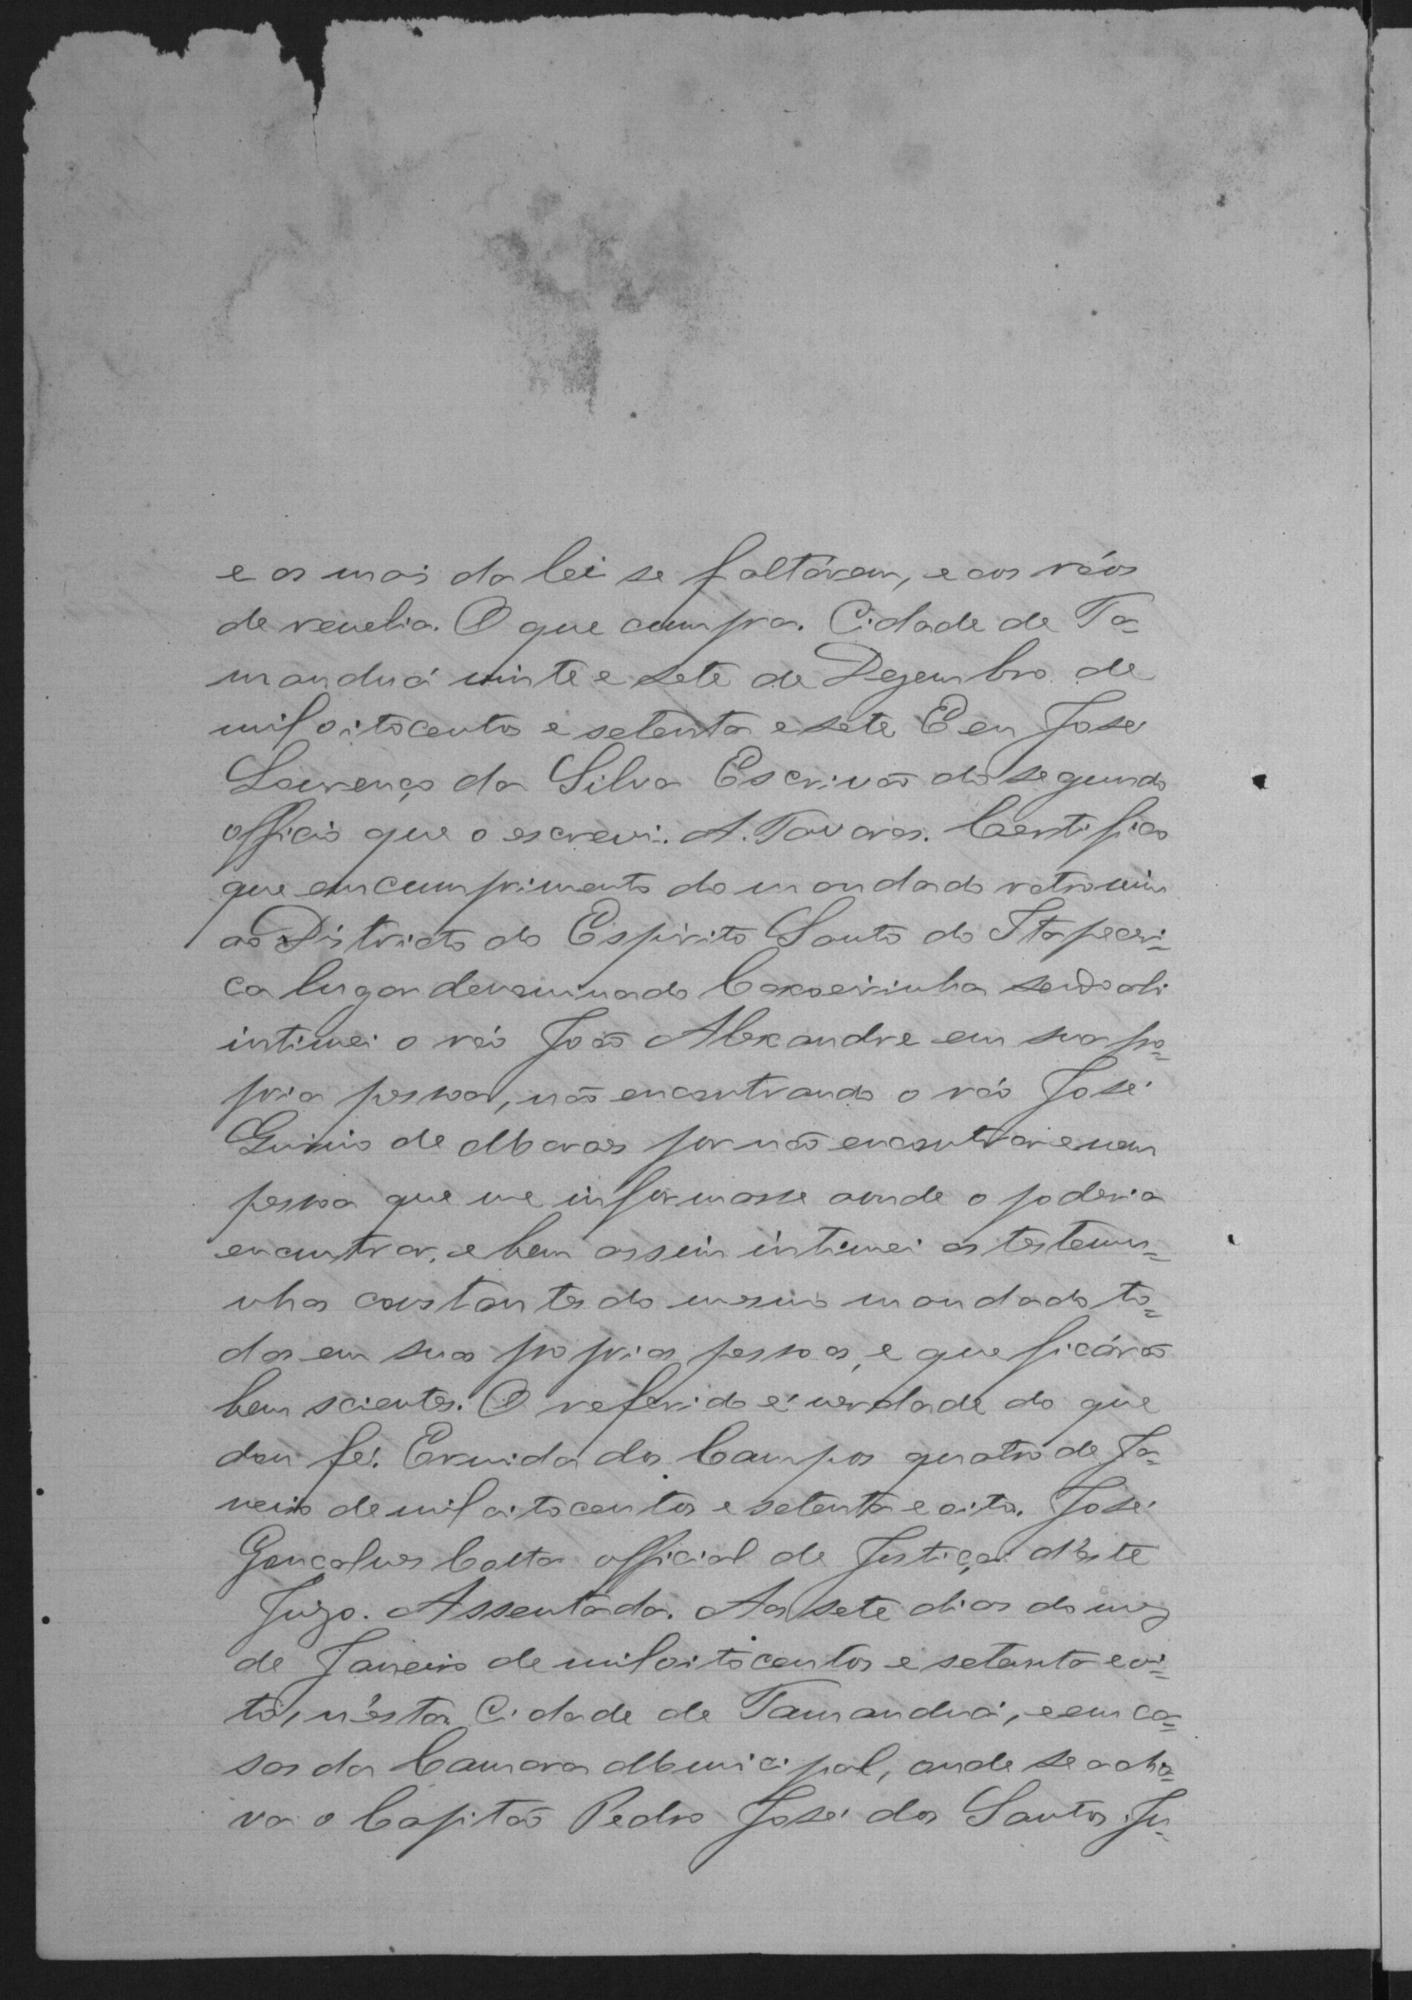 e as mais da lei se faltárem, e aos réos
de revelia. O que cumpra. Cidade de Ta=
manduá vinte e sete de Dezembro de
mil oitocentos e setenta e sete E eu José
Lourenço da Silva Escrivão do segundo
officio que o escrevi. A. Tavares. Certifico
que em cumprimento do mandado retro vim
ao Districto do Espirito Santo do Itapeceri=
ca lugar denominado Caxoeirinha sendo ahi
intimei o réo João Alexandre em sua pro=
pria pessoa, não encontrando o réo José
de Moraes por não encontrar e nem
pessoa que me informasse aonde o poderia
encontrar, e bem assim intimei as testemu=
nhas constantes do mesmo mandado to=
das em suas proprias pessoas, e que ficárão
bem scientes. O referido é verdade do que
dou fé. Ermida dos Campos quatro de Ja=
neiro de mil oitocentos e setenta e oito. José
Gonçalves Cotta official de Justiça d'este
Juizo. Assentada. Aos sete dias do mez
de Janeiro de mil oitocentos e setenta e oi=
to, n'esta Cidade de Tamanduá, e em ca=
sas da Camara Municipal, onde se acha=
va o Capitão Pedro José dos Santos Ju=